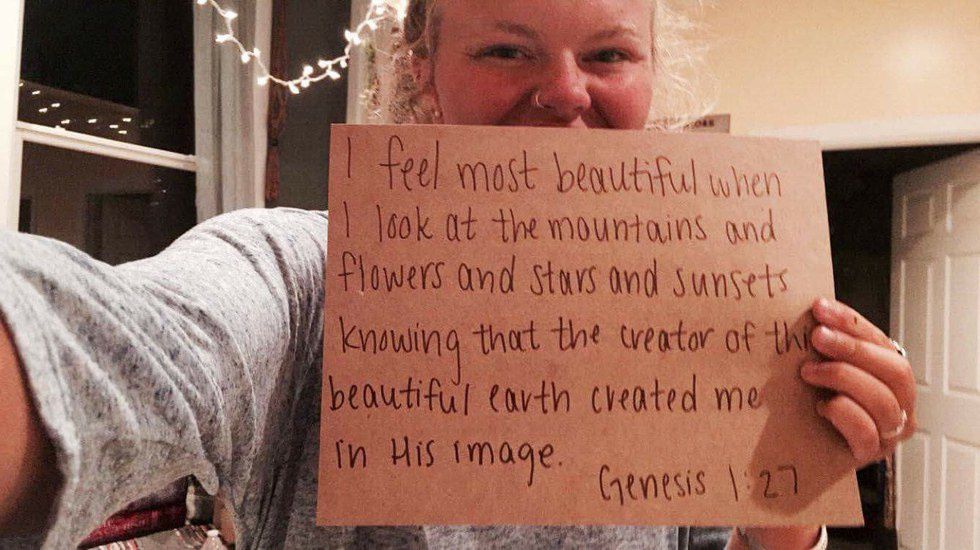 I feel most beautiful when
I look at the mountains and
flowers and stars and sunsets
knowing that the creator of thi
beautiful earth created me
in His image.
Genesis 1:27